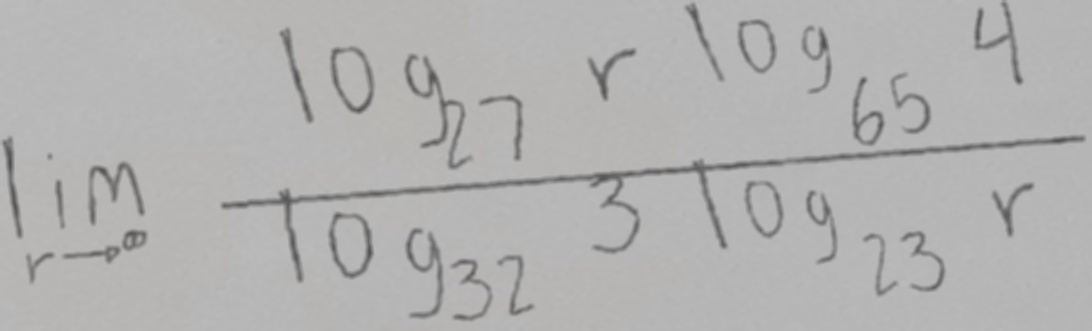 \lim_{r \to \infty} \frac{\log_{27} r \log_{65} 4}{\log_{32} 3 \log_{23} r}